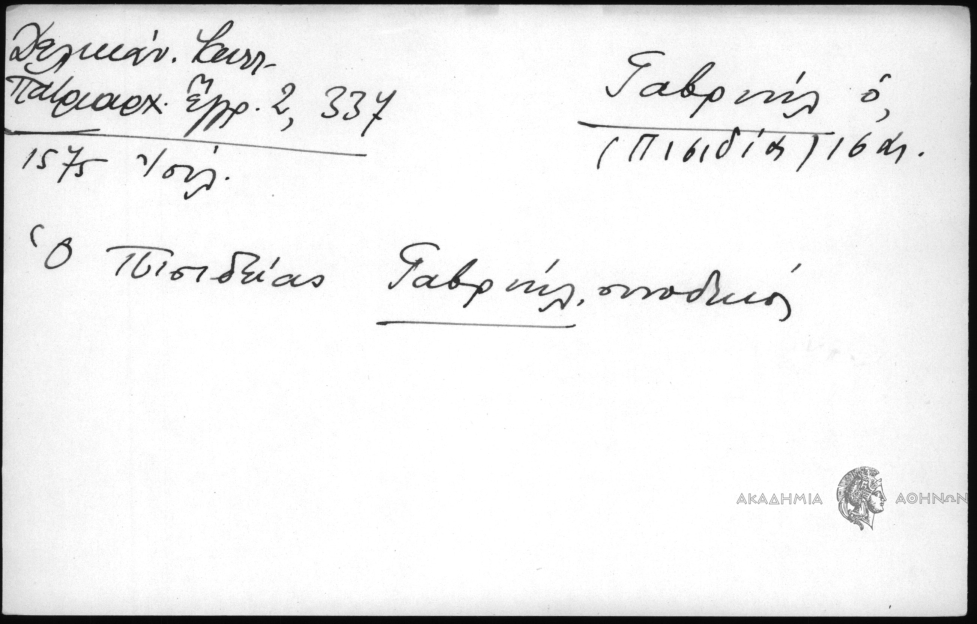 Δελικάν. Καλλ.
Πατριαρχ. Ἔγγρ. 2, 337
1575
Γαβριήλ ὁ,
(Πισιδίας) 16 αι.
Ὁ Πισιδείας Γαβριήλ, συνοδικός
ΑΚΑΔΗΜΙΑ ΑΘΗΝΩΝ